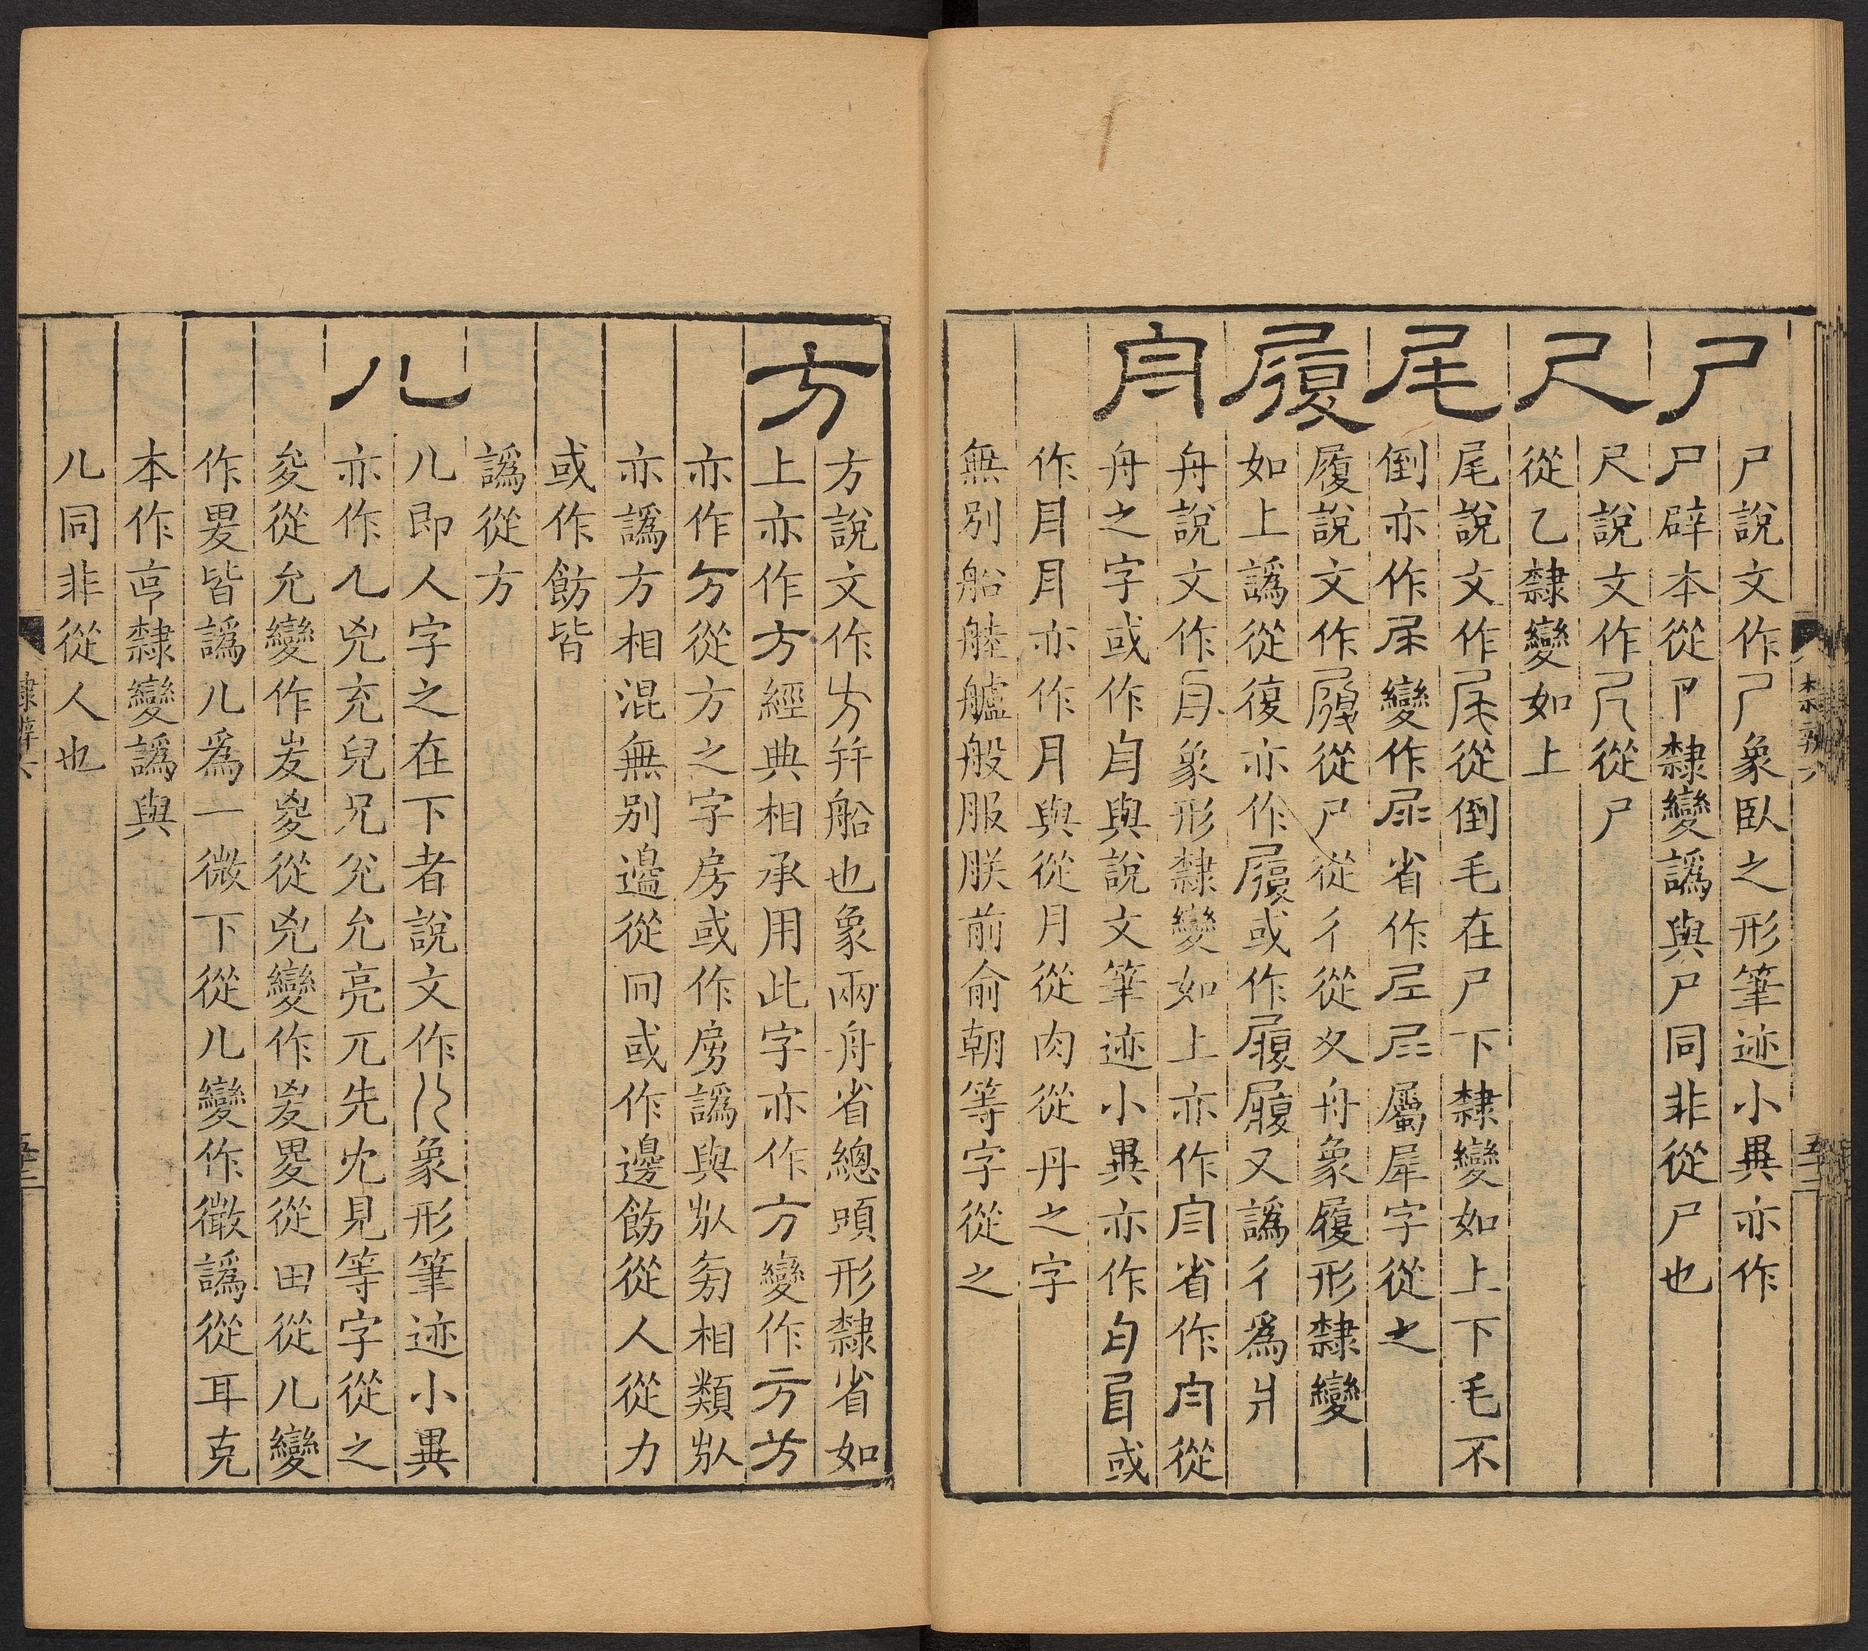 尸
尸說文作𡰣象臥之形筆迹小異亦作
尸辟本從卩隸變譌與尸同非從尸也
尺
尺說文作尺從尸
從乙隸變如上
尾
尾說文作尾從倒毛在尸下隸變如上下毛不
倒亦作𡱒變作𡱒省作𡰴𡰴屬犀字從之
履
履說文作履從尸從彳從夊舟象履形隸變
如上譌從復亦作履或作履履又譌彳爲爿
舟
舟說文作舟象形隸變如上亦作舟省作舟從
舟之字或作舟與說文筆迹小異亦作舟舟或
作月月亦作月與從月從肉從丹之字
無別船艂艫般服朕前俞朝等字從之
方
方說文作方并船也象兩舟省總頭形隸省如
上亦作方經典相承用此字亦作方變作方方
亦作方從方之字房或作房譌與㫃旁相類㫃
亦譌方相混無別邊從冋或作邊飭從人從力
或作飭皆
譌從方
儿
儿即人字之在下者說文作儿象形筆迹小異
亦作乁兇充兒兄兊允亮兀先兂見等字從之
夋從允變作夋㚇從兇變作㚇畟從田從儿變
作畟皆譌儿爲一微下從儿變作微譌從耳克
本作克隸變譌與
儿同非從人也